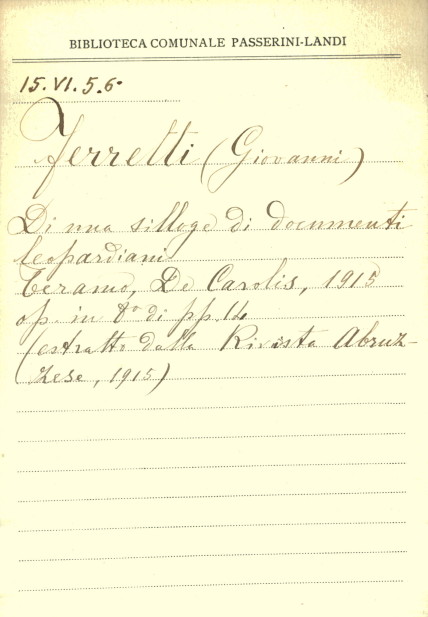 BIBLIOTECA COMUNALE PASSERINI-LANDI
15. VI. 5. 6.
Ferretti (Giovanni)
Di una silloge di documenti
leopardiani
Teramo, De Carolis, 1915
op. in 8° di pp. 14
(estratto dalla Rivista Abruz-
zese, 1915)